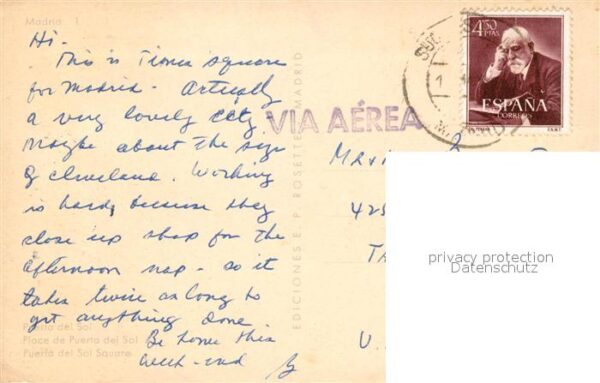 Madrid 1
Hi.
This is Times square
for Madrid. Actually
a very lovely city
Maybe about the size
of Cleveland. Working
is hard, because they
close up shop for the
afternoon nap - so it
takes twice as long to
get anything done
Be home this
week-end
Puerta del Sol
Place de Puerta del Sol
Puerta del Sol Square
EDICIONES E. P. ROSETTE MADRID
VIA AÉREA
4,50
PTAS
ESPAÑA
CORREOS
425
TA
U.
privacy protection
Datenschutz